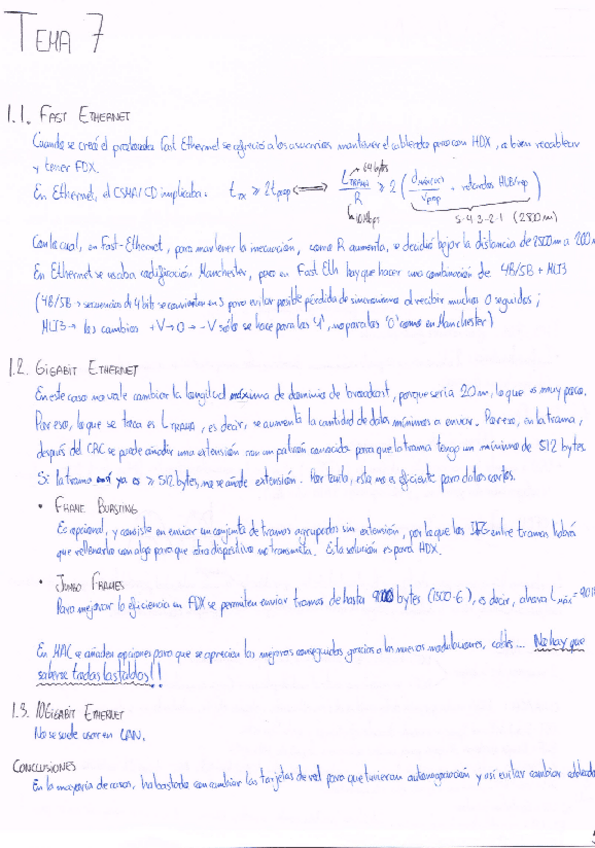 TEMA 7
1.1. FAST ETHERNET
Cuando se creó el protocolo Fast Ethernet se ofreció a los usuarios mantener el cableado pero con HDX, o bien recablear
y tener FDX.
En Ethernet, el CSMA/CD implicaba: t_tx ≥ 2t_prop ⟺ L_TRAMA / R ≥ 2 ( d_MÁX / v_prop + retardos HUB/rep )
64 bytes
10Mbps
5-4-3-2-1 (2500 m)
Con lo cual, en Fast-Ethernet, para mantener la inecuación, como R aumenta, se decidió bajar la distancia de 2500m a 200m
En Ethernet se usaba codificación Manchester, pero en Fast Eth hay que hacer una combinación de 4B/5B + MLT3
(4B/5B → secuencias de 4 bits se convierten en 5 para evitar posible pérdida de sincronismo al recibir muchos 0 seguidos;
MLT3 → los cambios +V→0→-V sólo se hace para los '1', no para los '0' como en Manchester)
1.2. GIGABIT ETHERNET
En este caso no vale cambiar la longitud máxima de dominio de broadcast, porque sería 20m, lo que es muy poco.
Por eso, lo que se toca es L_TRAMA, es decir, se aumenta la cantidad de datos mínimos a enviar. Por eso, en la trama,
después del CRC se puede añadir una extensión con un patrón conocido para que la trama tenga un mínimo de 512 bytes.
Si la trama ya es ≥ 512 bytes, no se añade extensión. Por tanto, esto no es eficiente para datos cortos.
• FRAME BURSTING
Es opcional, y consiste en enviar un conjunto de tramas agrupadas sin extensión, por lo que los IFG entre tramas habrá
que rellenarlo con algo para que otro dispositivo no transmita. Esta solución es para HDX.
• JUMBO FRAMES
Para mejorar la eficiencia en FDX se permiten enviar tramas de hasta 9000 bytes (1500·6), es decir, ahora L_MÁX =
En MAC se añaden opciones para que se aprecien las mejoras conseguidas gracias a las nuevas modulaciones, cables... No hay que
saberse todas las tablas!!
1.3. 10GIGABIT ETHERNET
No se suele usar en LAN.
CONCLUSIONES
En la mayoría de casos, ha bastado con cambiar las tarjetas de red para que tuvieran autonegociación y así evitar cambiar